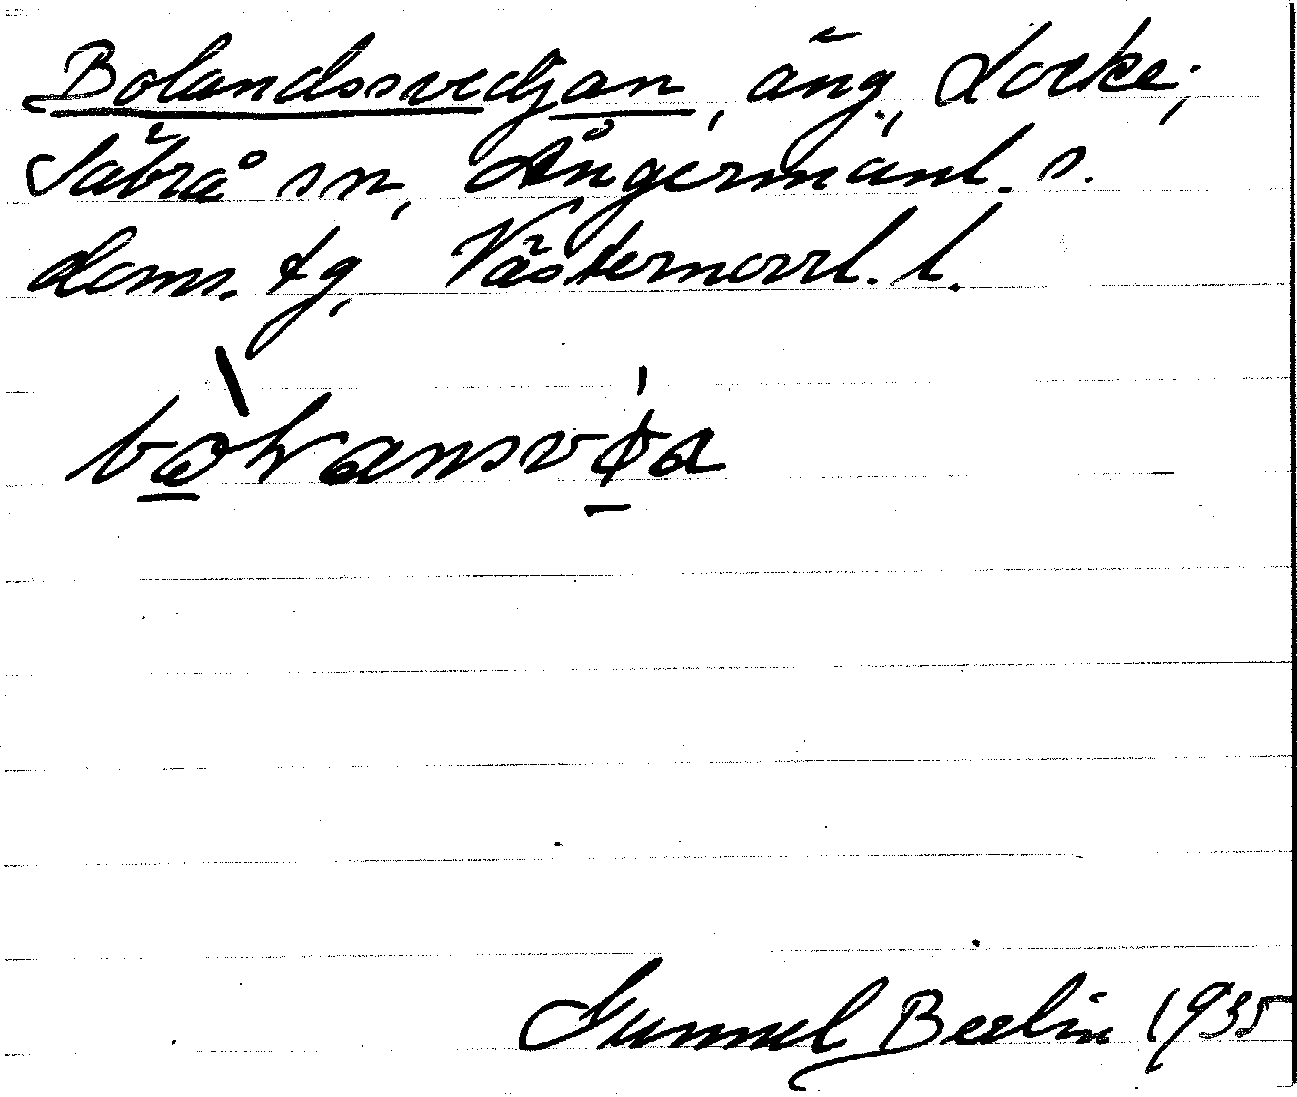 Bolandssvedjan, äng, Locke;
Säbrå sn, Ångermanl. s.
doms. tg, Västernorrl. l.
Gunnel Berlin 1935